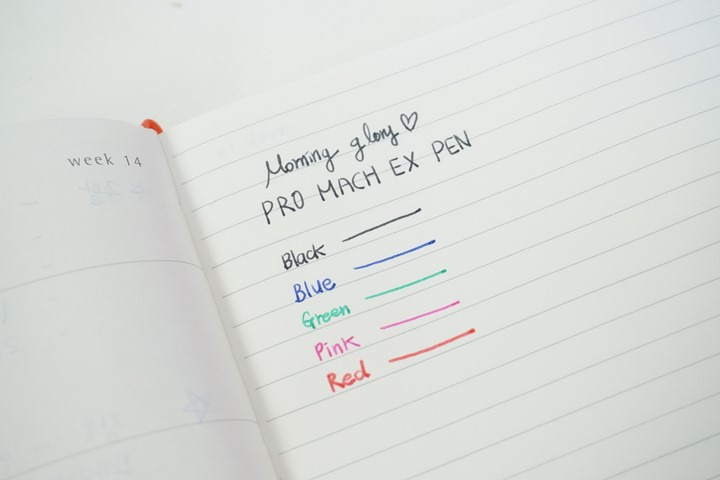 week 14
Morning glory♡
PRO MACH EX PEN
Black
Blue
Green
Pink
Red